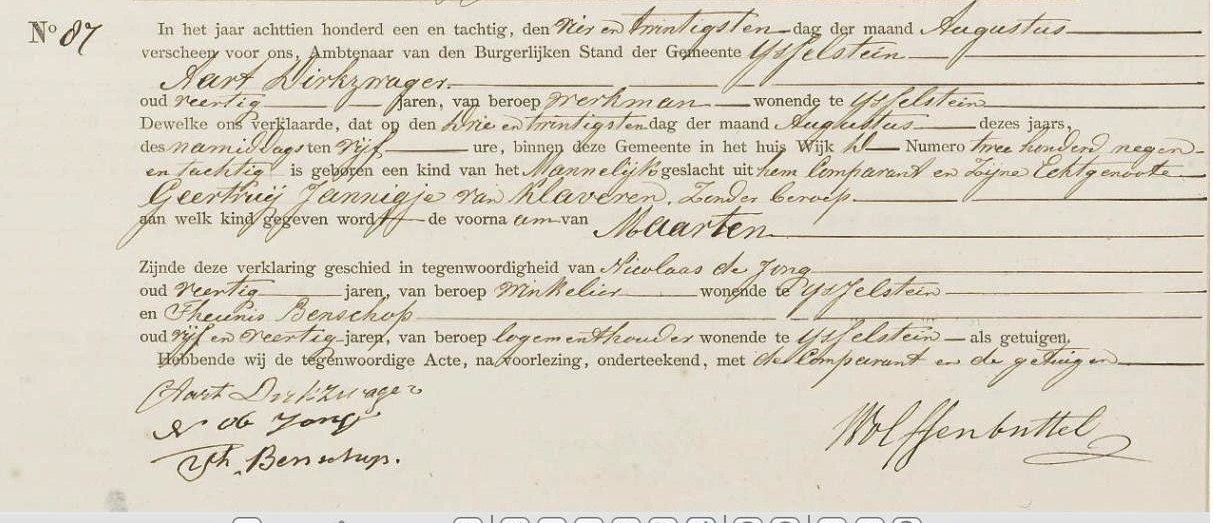 No 87
In het jaar achttien honderd een en tachtig, den vier en twintigsten dag der maand Augustus
verscheen voor ons, Ambtenaar van den Burgerlijken Stand der Gemeente IJsselstein
Aart Dirkzwager
oud veertig jaren, van beroep werkman wonende te IJsselstein
Dewelke ons verklaarde, dat op den drie en twintigsten dag der maand Augustus dezes jaars,
des namiddags ten vijf ure, binnen deze Gemeente in het huis Wijk Numero twee honderd negen-
en tachtig is geboren een kind van het Mannelijk geslacht uit hem Comparant en Zijne Echtgenoote
Geertruij Jannigje van Klaveren, Zonder beroep
aan welk kind gegeven wordt de voornaam van Maarten
Zijnde deze verklaring geschied in tegenwoordigheid van Nicolaas de Jong
oud veertig jaren, van beroep winkelier wonende te IJsselstein
en Theunis Benschop
oud vijf en veertig jaren, van beroep logementhouder wonende te IJsselstein als getuigen.
Hebbende wij de tegenwoordige Acte, na voorlezing, onderteekend, met de Comparant en de getuigen
Aart Dirkzwager
N de Jong
Th. Benschop.
Wolffenbuttel